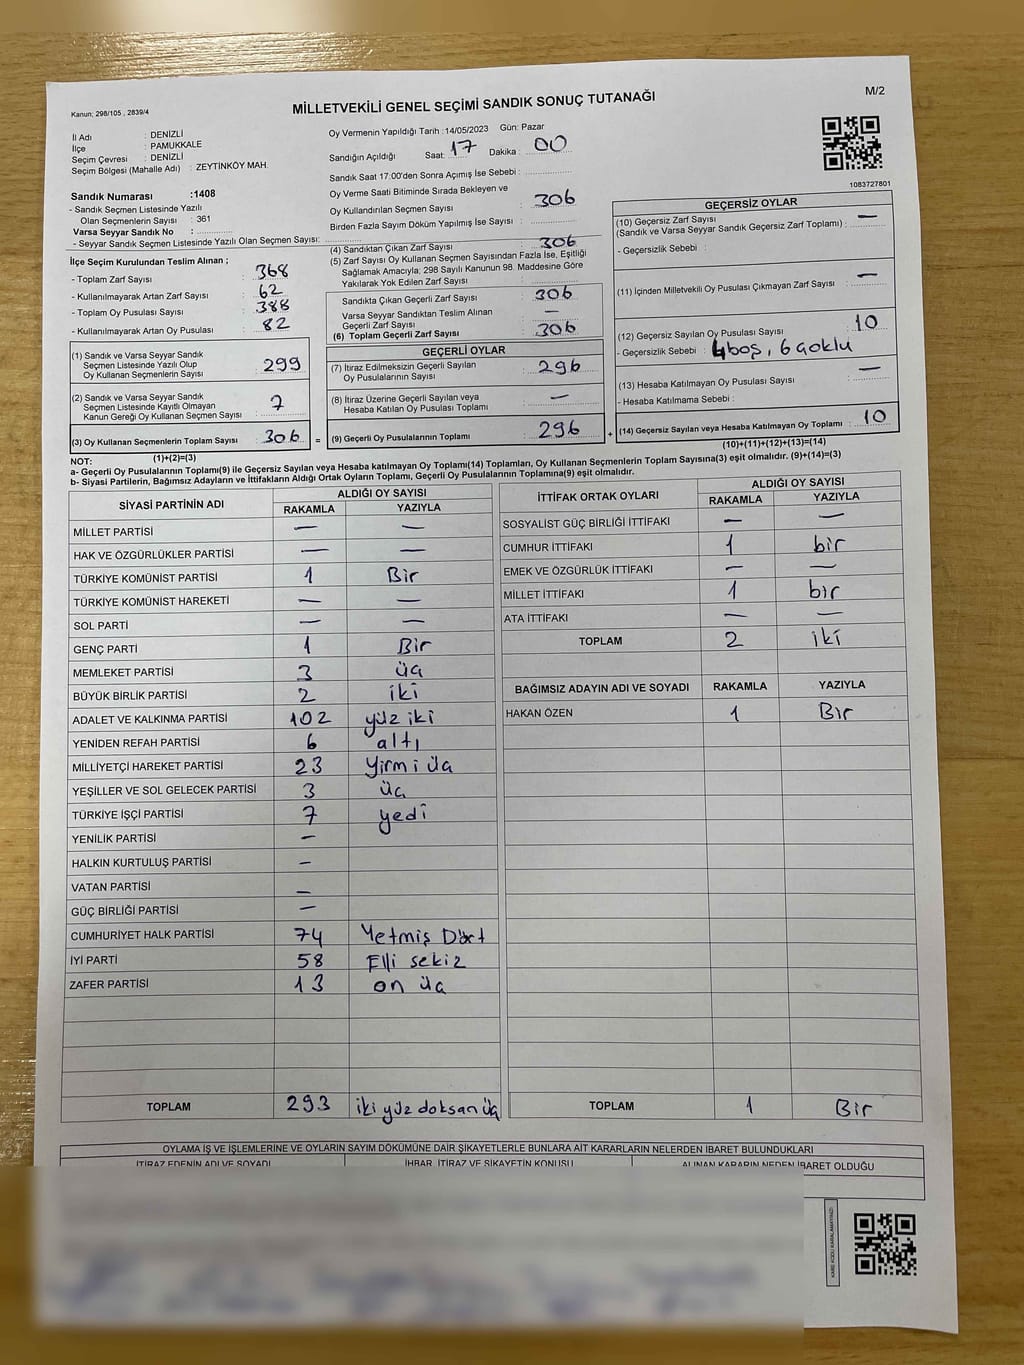 M/2
Kanun: 298/105 , 2839/4
MİLLETVEKİLİ GENEL SEÇİMİ SANDIK SONUÇ TUTANAĞI
İl Adı : DENİZLİ
İlçe : PAMUKKALE
Seçim Çevresi : DENİZLİ
Seçim Bölgesi (Mahalle Adı) : ZEYTİNKÖY MAH.
Sandık Numarası :1408
- Sandık Seçmen Listesinde Yazılı
Olan Seçmenlerin Sayısı : 361
Varsa Seyyar Sandık No :
- Seyyar Sandık Seçmen Listesinde Yazılı Olan Seçmen Sayısı:
İlçe Seçim Kurulundan Teslim Alınan ;
- Toplam Zarf Sayısı : 368
- Kullanılmayarak Artan Zarf Sayısı : 62
- Toplam Oy Pusulası Sayısı : 388
- Kullanılmayarak Artan Oy Pusulası : 82
(1) Sandık ve Varsa Seyyar Sandık
Seçmen Listesinde Yazılı Olup
Oy Kullanan Seçmenlerin Sayısı : 299
(2) Sandık ve Varsa Seyyar Sandık
Seçmen Listesinde Kayıtlı Olmayan
Kanun Gereği Oy Kullanan Seçmen Sayısı : 7
(3) Oy Kullanan Seçmenlerin Toplam Sayısı : 306 =
(1)+(2)=(3)
Oy Vermenin Yapıldığı Tarih :14/05/2023 Gün: Pazar
Sandığın Açıldığı Saat: 17 Dakika : 00
Sandık Saat 17:00'den Sonra Açımış İse Sebebi :
Oy Verme Saati Bitiminde Sırada Bekleyen ve
Oy Kullandırılan Seçmen Sayısı : 306
Birden Fazla Sayım Döküm Yapılmış İse Sayısı :
(4) Sandıktan Çıkan Zarf Sayısı : 306
(5) Zarf Sayısı Oy Kullanan Seçmen Sayısından Fazla İse, Eşitliği
Sağlamak Amacıyla; 298 Sayılı Kanunun 98. Maddesine Göre
Yakılarak Yok Edilen Zarf Sayısı :
Sandıkta Çıkan Geçerli Zarf Sayısı : 306
Varsa Seyyar Sandıktan Teslim Alınan
Geçerli Zarf Sayısı : —
(6) Toplam Geçerli Zarf Sayısı : 306
GEÇERLİ OYLAR
(7) İtiraz Edilmeksizin Geçerli Sayılan
Oy Pusulalarının Sayısı : 296
(8) İtiraz Üzerine Geçerli Sayılan veya
Hesaba Katılan Oy Pusulası Toplamı : —
(9) Geçerli Oy Pusulalarının Toplamı : 296 +
1083727801
GEÇERSİZ OYLAR
(10) Geçersiz Zarf Sayısı
(Sandık ve Varsa Seyyar Sandık Geçersiz Zarf Toplamı) : —
- Geçersizlik Sebebi :
(11) İçinden Milletvekili Oy Pusulası Çıkmayan Zarf Sayısı : —
(12) Geçersiz Sayılan Oy Pusulası Sayısı : 10
- Geçersizlik Sebebi : 4 boş, 6 çoklu
(13) Hesaba Katılmayan Oy Pusulası Sayısı : —
- Hesaba Katılmama Sebebi :
(14) Geçersiz Sayılan veya Hesaba Katılmayan Oy Toplamı : 10
(10)+(11)+(12)+(13)=(14)
NOT:
a- Geçerli Oy Pusulalarının Toplamı(9) ile Geçersiz Sayılan veya Hesaba katılmayan Oy Toplamı(14) Toplamları, Oy Kullanan Seçmenlerin Toplam Sayısına(3) eşit olmalıdır. (9)+(14)=(3)
b- Siyasi Partilerin, Bağımsız Adayların ve İttifakların Aldığı Ortak Oyların Toplamı, Geçerli Oy Pusulalarının Toplamına(9) eşit olmalıdır.
SİYASİ PARTİNİN ADI ALDIĞI OY SAYISI
RAKAMLA YAZIYLA
MİLLET PARTİSİ — —
HAK VE ÖZGÜRLÜKLER PARTİSİ — —
TÜRKİYE KOMÜNİST PARTİSİ 1 Bir
TÜRKİYE KOMÜNİST HAREKETİ — —
SOL PARTİ — —
GENÇ PARTİ 1 Bir
MEMLEKET PARTİSİ 3 üç
BÜYÜK BİRLİK PARTİSİ 2 iki
ADALET VE KALKINMA PARTİSİ 102 yüz iki
YENİDEN REFAH PARTİSİ 6 altı
MİLLİYETÇİ HAREKET PARTİSİ 23 Yirmi üç
YEŞİLLER VE SOL GELECEK PARTİSİ 3 üç
TÜRKİYE İŞÇİ PARTİSİ 7 yedi
YENİLİK PARTİSİ —
HALKIN KURTULUŞ PARTİSİ —
VATAN PARTİSİ —
GÜÇ BİRLİĞİ PARTİSİ —
CUMHURİYET HALK PARTİSİ 74 Yetmiş Dört
İYİ PARTİ 58 Elli sekiz
ZAFER PARTİSİ 13 on üç
TOPLAM 293 iki yüz doksan üç
İTTİFAK ORTAK OYLARI ALDIĞI OY SAYISI
RAKAMLA YAZIYLA
SOSYALİST GÜÇ BİRLİĞİ İTTİFAKI — —
CUMHUR İTTİFAKI 1 bir
EMEK VE ÖZGÜRLÜK İTTİFAKI — —
MİLLET İTTİFAKI 1 bir
ATA İTTİFAKI — —
TOPLAM 2 iki
BAĞIMSIZ ADAYIN ADI VE SOYADI RAKAMLA YAZIYLA
HAKAN ÖZEN 1 Bir
TOPLAM 1 Bir
OYLAMA İŞ VE İŞLEMLERİNE VE OYLARIN SAYIM DÖKÜMÜNE DAİR ŞİKAYETLERLE BUNLARA AİT KARARLARIN NELERDEN İBARET BULUNDUKLARI
İTİRAZ EDENİN ADI VE SOYADI İHBAR, İTİRAZ VE ŞİKAYETİN KONUSU ALINAN KARARIN NEDEN İBARET OLDUĞU
KARE KODU KARALAMAYINIZ!